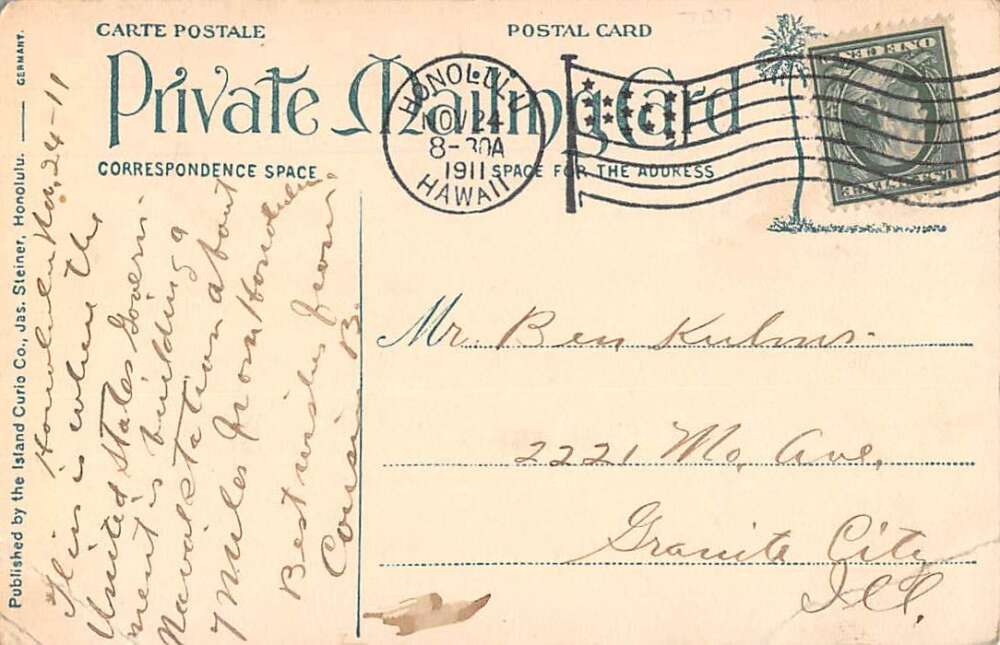 CARTE POSTALE
POSTAL CARD
Private Mailing Card
CORRESPONDENCE SPACE
SPACE FOR THE ADDRESS
HONOLULU
NOV 24
8-30A
1911
HAWAII
ONE CENT
Published by the Island Curio Co., Jas. Steiner, Honolulu.
GERMANY.
Honolulu Nov. 24-11
This is where the
United States Govern-
ment is building a
Naval Station about
7 Miles from Honolulu
Best wishes from
Cousin B.
Mr. Ben Kuhns.
2221 Mo, Ave,
Granite City
Ill,